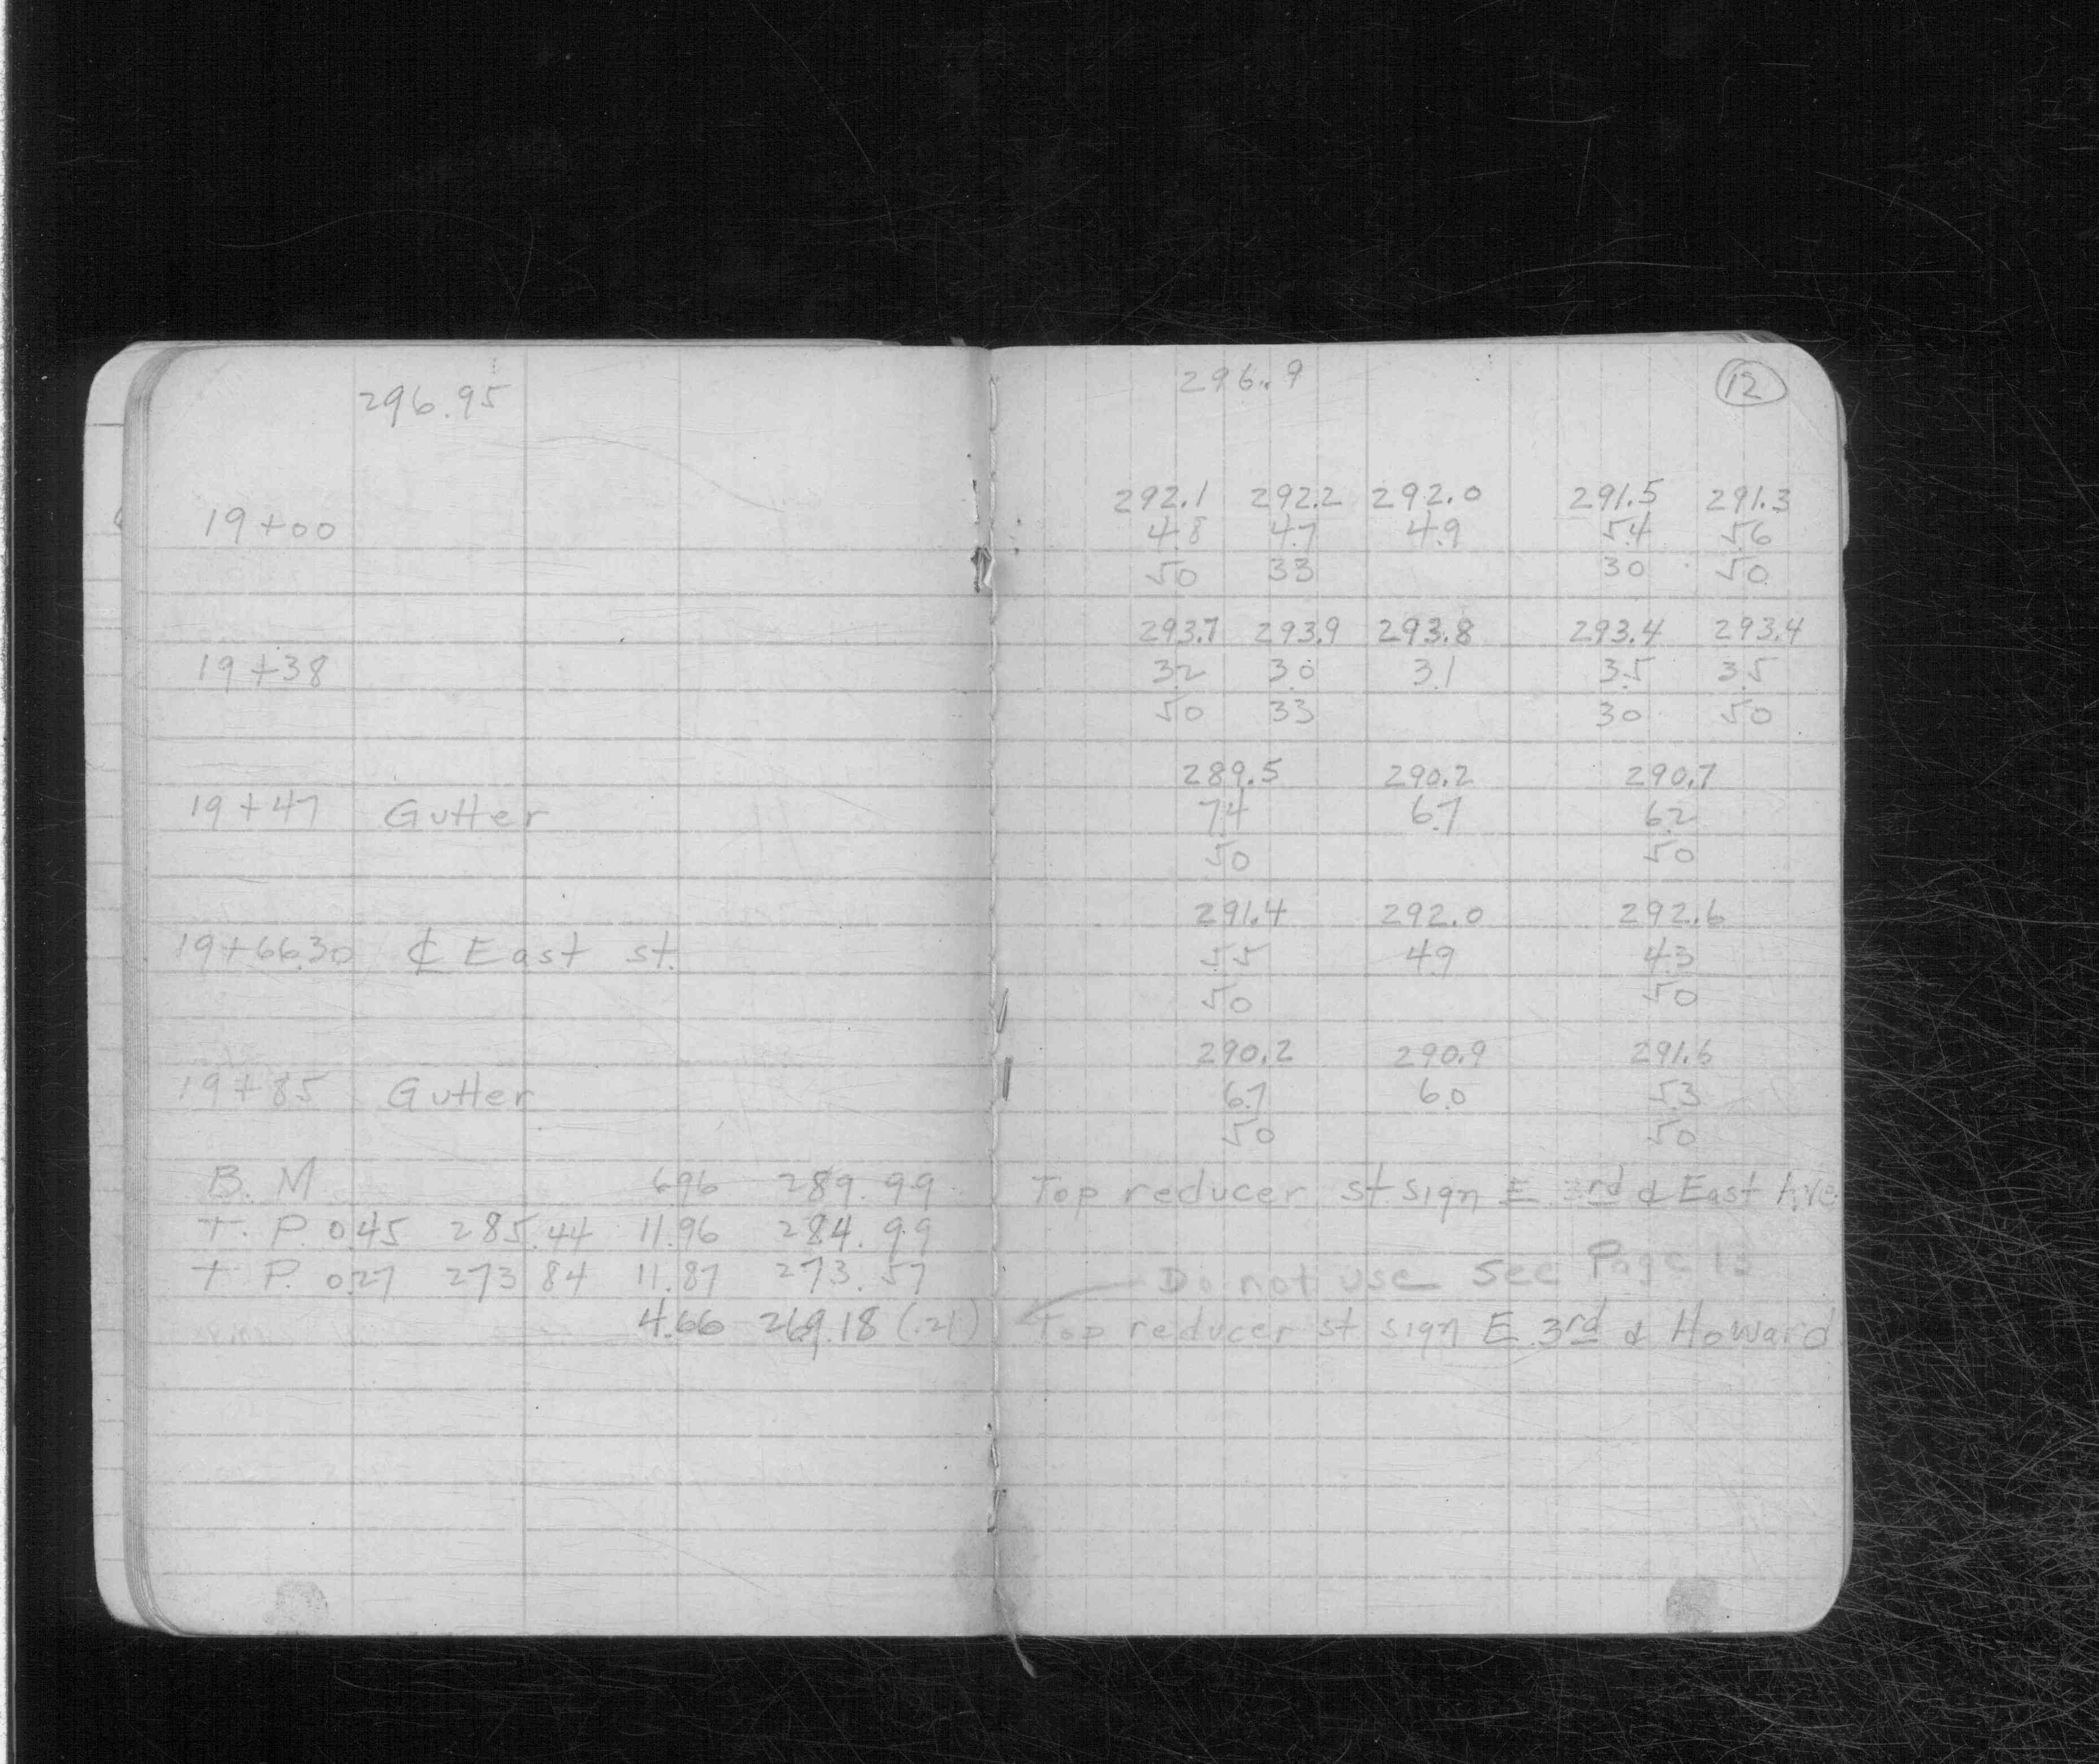 296.95 296.9 12
292.1 292.2 292.0 291.5 291.3
19+00 4.8 4.7 4.9 5.4 5.6
50 33 30 50
293.7 293.9 293.8 293.4 293.4
19+38 3.2 3.0 3.1 3.5 3.5
50 33 30 50
289.5 290.2 290.7
19+47 Gutter 7.4 6.7 6.2
50 50
291.4 292.0 292.6
19+66.30 ℄ East st. 5.5 4.9 4.3
50 50
290.2 290.9 291.6
19+85 Gutter 6.7 6.0 5.3
50 50
B. M 6.96 289.99 Top reducer st sign E 3rd & East Ave
T. P. 0.45 285.44 11.96 284.99
T. P. 0.27 273.84 11.87 273.57 Do not use See Page
4.66 269.18 (.21) Top reducer st sign E 3rd & Howard